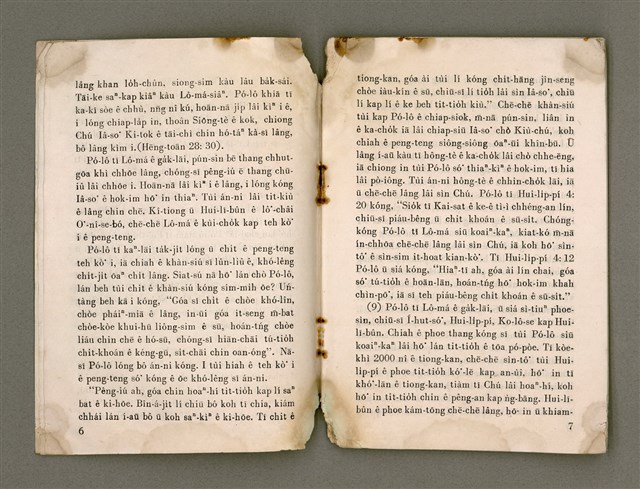 lâng khan lo̍h-chûn, siong-sim kàu lâu ba̍k-sái.
Tāi-ke saⁿ-kap kiâⁿ kàu Lô-má-siâⁿ. Pó-lô khiā tī
ka-kī sòe ê chhù, nn̄g nî kú, hoān-nā ji̍p lâi kìⁿ i ê,
i lóng chiap-la̍p in, thoân Siōng-tè ê kok, chiong
Chú Iâ-so͘ Ki-tok ê tāi-chì chin hó-táⁿ kà-sī lâng,
bô lâng kìm i.(Hēng-toān 28: 30).
Pó-lô tī Lô-má ê ga̍k-lāi, pún-sin bē thang chhut-
góa khì chhōe lâng, chóng-sī pêng-iú ē thang chū-
iû lâi chhōe i. Hoān-nā lâi kìⁿ i ê lâng, i lóng kóng
Iâ-so͘ ê hok-im hō͘ in thiaⁿ. Tùi án-nî lâi tit-kiù
ê lâng chin chē. Kî-tiong ū Hui-lī-bûn ê lô͘-châi
O͘-nî-se-bó, chē-chē Lô-má ê kùi-cho̍k kap teh kò͘
i ê peng-teng.
Pó-lô tī kaⁿ-lāi ta̍k-ji̍t lóng ū chi̍t ê peng-teng
teh kò͘ i, iā chiah ê khàn-siú sī lûn-liû ê, khó-lêng
chi̍t-ji̍t ōaⁿ chi̍t lâng. Siat-sú nā hō͘ lán chò Pó-lô,
lán beh tùi chit ê khàn-siú kóng sím-mi̍h ōe? Ún-
tàng beh kā i kóng, "Góa sī chi̍t ê chòe khó-lîn,
chòe pháiⁿ-miā ê lâng, in-ūi góa it-seng m̄-bat
chòe-kòe khui-hū liông-sim ê sū, hoán-tńg chòe
liáu chin chē ê hó-sū, chóng-sī hiān-chāi tú-tio̍h
chit-khoán ê kéng-gū, si̍t-chāi chin oan-óng". Nā-
sī Pó-lô lóng bô án-nî kóng. I tùi hiah ê teh kò͘ i
ê peng-teng só͘ kóng ê ōe khó-lêng sī án-ni.
"Pêng-iú ah, góa chin hoaⁿ-hí tit-tio̍h kap lí saⁿ
bat ê ki-hōe. Bîn-á-ji̍t lí chiū bô koh tī chia, kiám
chhái lán í-āu bô ū koh saⁿ-kìⁿ ê ki-hōe. Tī chit ê
6
tiong-kan, góa ài tùi lí kóng chi̍t-hāng jîn-seng
chòe iàu-kín ê sū, chiū-sī lí tio̍h lâi sìn Iâ-so͘, chiū
lí kap lí ê ke beh tit-tio̍h kiù." Chē-chē khàn-siú
tùi kap Pó-lô ê chiap-siok, m̄-nā pún-sin, liân in
ê ka-cho̍k iā lâi chiap-siū Iâ-so͘ chò Kiù-chú, koh
chiah ê peng-teng siông-siông ōaⁿ-ūi khîn-bū. Ū
lâng í-āu kàu tī hông-tè ê ka-cho̍k lâi chò chhe-ēng,
iā chiong in tùi Pó-lô só͘ thiaⁿ-kìⁿ ê hok-im, tī hia
lâi pò-iông. Tùi án-ni hông-tè ê chhin-cho̍k lāi, iā
ū chē-chē lâng lâi sìn Chú. Pó-lô tī Hui-li̍p-pí 4:
20 kóng, "Sio̍k tī Kai-sat ê ke-ê tì-ì chhéng-an lín,
chiū-sī piáu-bêng ū chit khoán ê sū-si̍t. Chóng-
kóng Pó-lô tī Lô-má siū koaiⁿ-kaⁿ, kiat-kó m̄-nā
ín-chhōa chē-chē lâng lâi sìn Chú, iā koh hō͘ sìn-
tô͘ ê sìn-sim it-hoat kian-kò͘. Tī Hui-li̍p-pí 4:12
Pó-lô ū siá kóng, "Hiaⁿ-tī ah, góa ài lín chai, góa
só͘ tú-tio̍h ê hoān-lān, hoán-tńg hō͘ hok-im khah
chìn-pō͘, iā sī teh piáu-bêng chit khoán ê sū-si̍t."
(9) Pó-lô tī Lô-má ê ga̍k-lāi, ū siá sì-tiuⁿ phoe-
sìn, chiū-sī Í-hut-só͘, Hui-li̍p-pí, Ko-lô-se kap Hui-
lī-bûn. Chiah ê phoe thang kóng sī tùi Pó-lô siū
koaiⁿ-kaⁿ lâi hō͘ lán tit-tio̍h ê tōa pó-pòe. Tī kòe-
khì 2000 nî ê tiong-kan, chē-chē sìn-tô͘ tùi Hui-
li̍p-pí ê phoe tit-tio̍h kó͘-lē kap an-ùi, hō͘ in tī
khó͘-lān ê tiong-kan, tiàm tī Chú lâi hoaⁿ-hí, koh
hō͘ in tit-tio̍h chin ê pêng-an kap ǹg-bāng. Hui-lī-
bûn ê phoe kám-tōng chē-chē lâng, hō͘ in ū khiam-
7